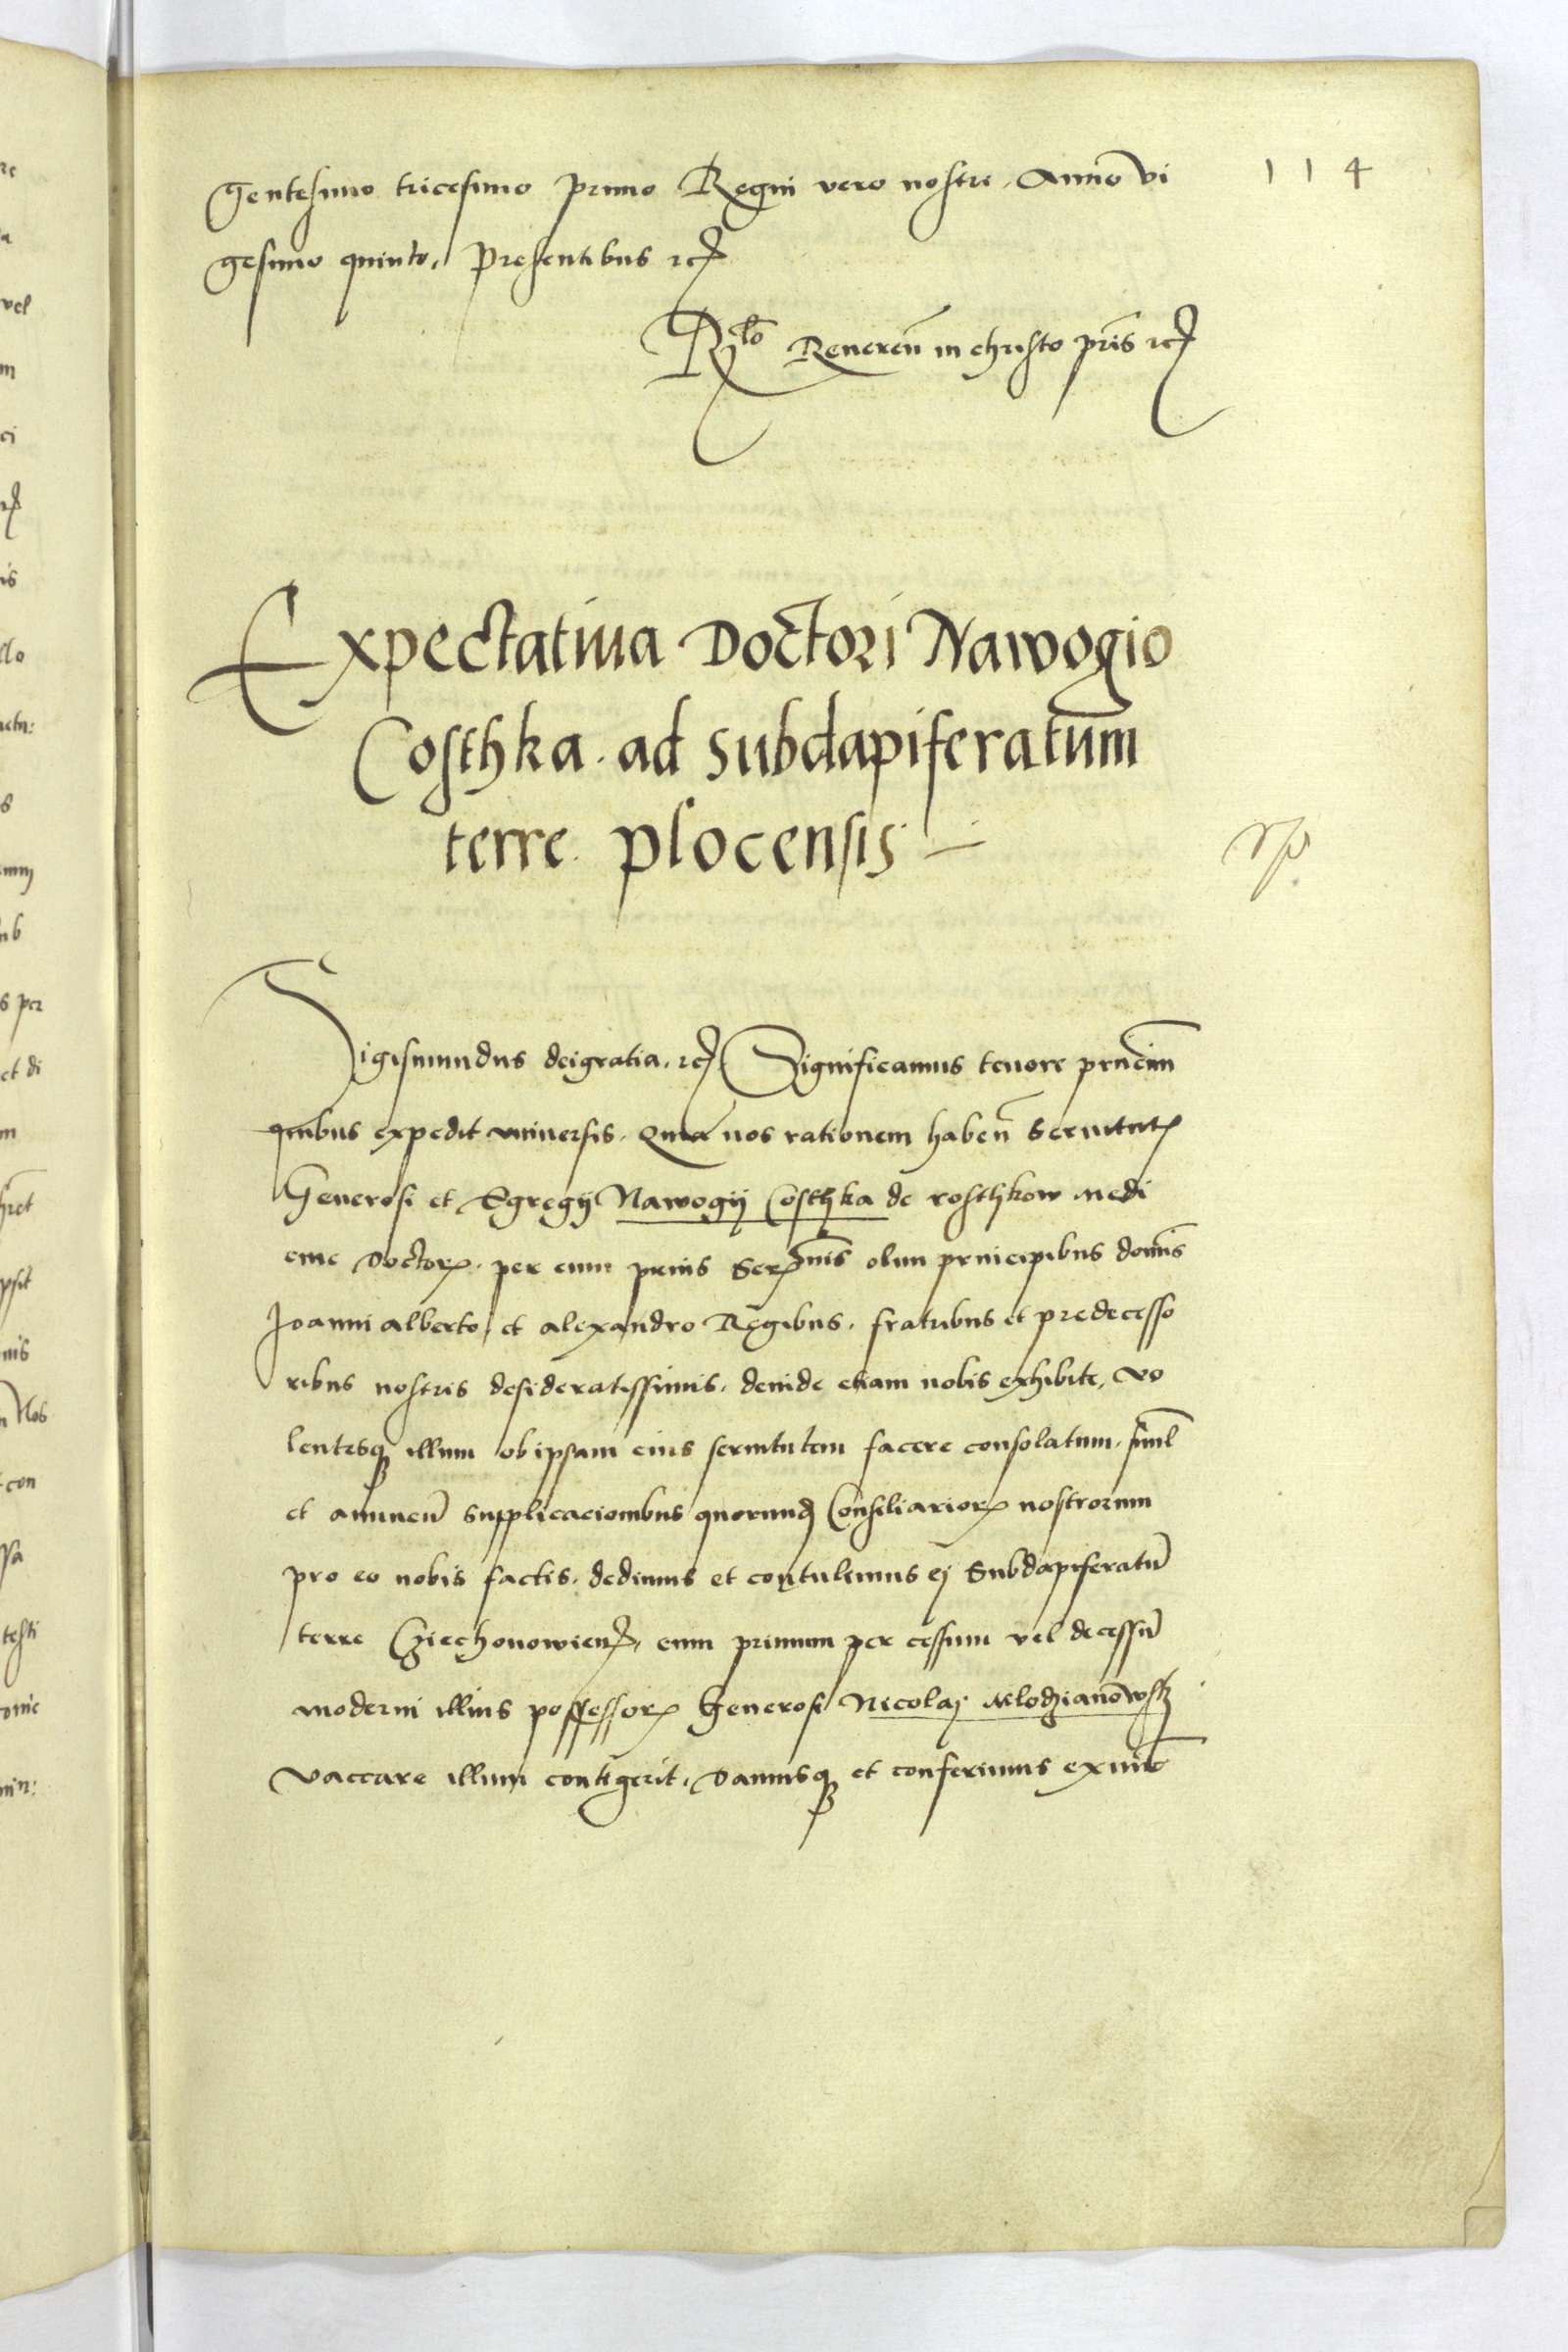 114
gentesimo tricesimo primo Regni vero nostri. Anno vi
gesimo quinto, presentibus etc
Rlo Reveren in christo pris etc
Expectativa Doctori Nawogio
Costhka. ad subdapiferatum
terre. plocensis
Sigismundus deigratia. etc Significamus tenore prncim
quibus expedit universis. Quia nos rationem haben servitut
Generosi et Egregij Nawogij Costhka de rosthkow Medi
cine Doctor. per eum prius Sermis olim principibus dominis
Joanni alberto, et alexandro Regibus. fratribus et predecesso
ribus nostris desideratissimis. deinde etiam nobis exhibite, vo
lentesq illum ob ipsam eius servitutem facere consolatum. siml
et annuen supplicacionibus quorund Consiliarior nostrorum
pro eo nobis factis. dedimus et contulimus ej Subdapiferatu
terre Cziechonowien, cum primum per cessum vel decessu
moderni illius possessor Generosi Nicolaj Mlodzianowsky
vaccare illum contigerit. Damusq et conferimus exnuc